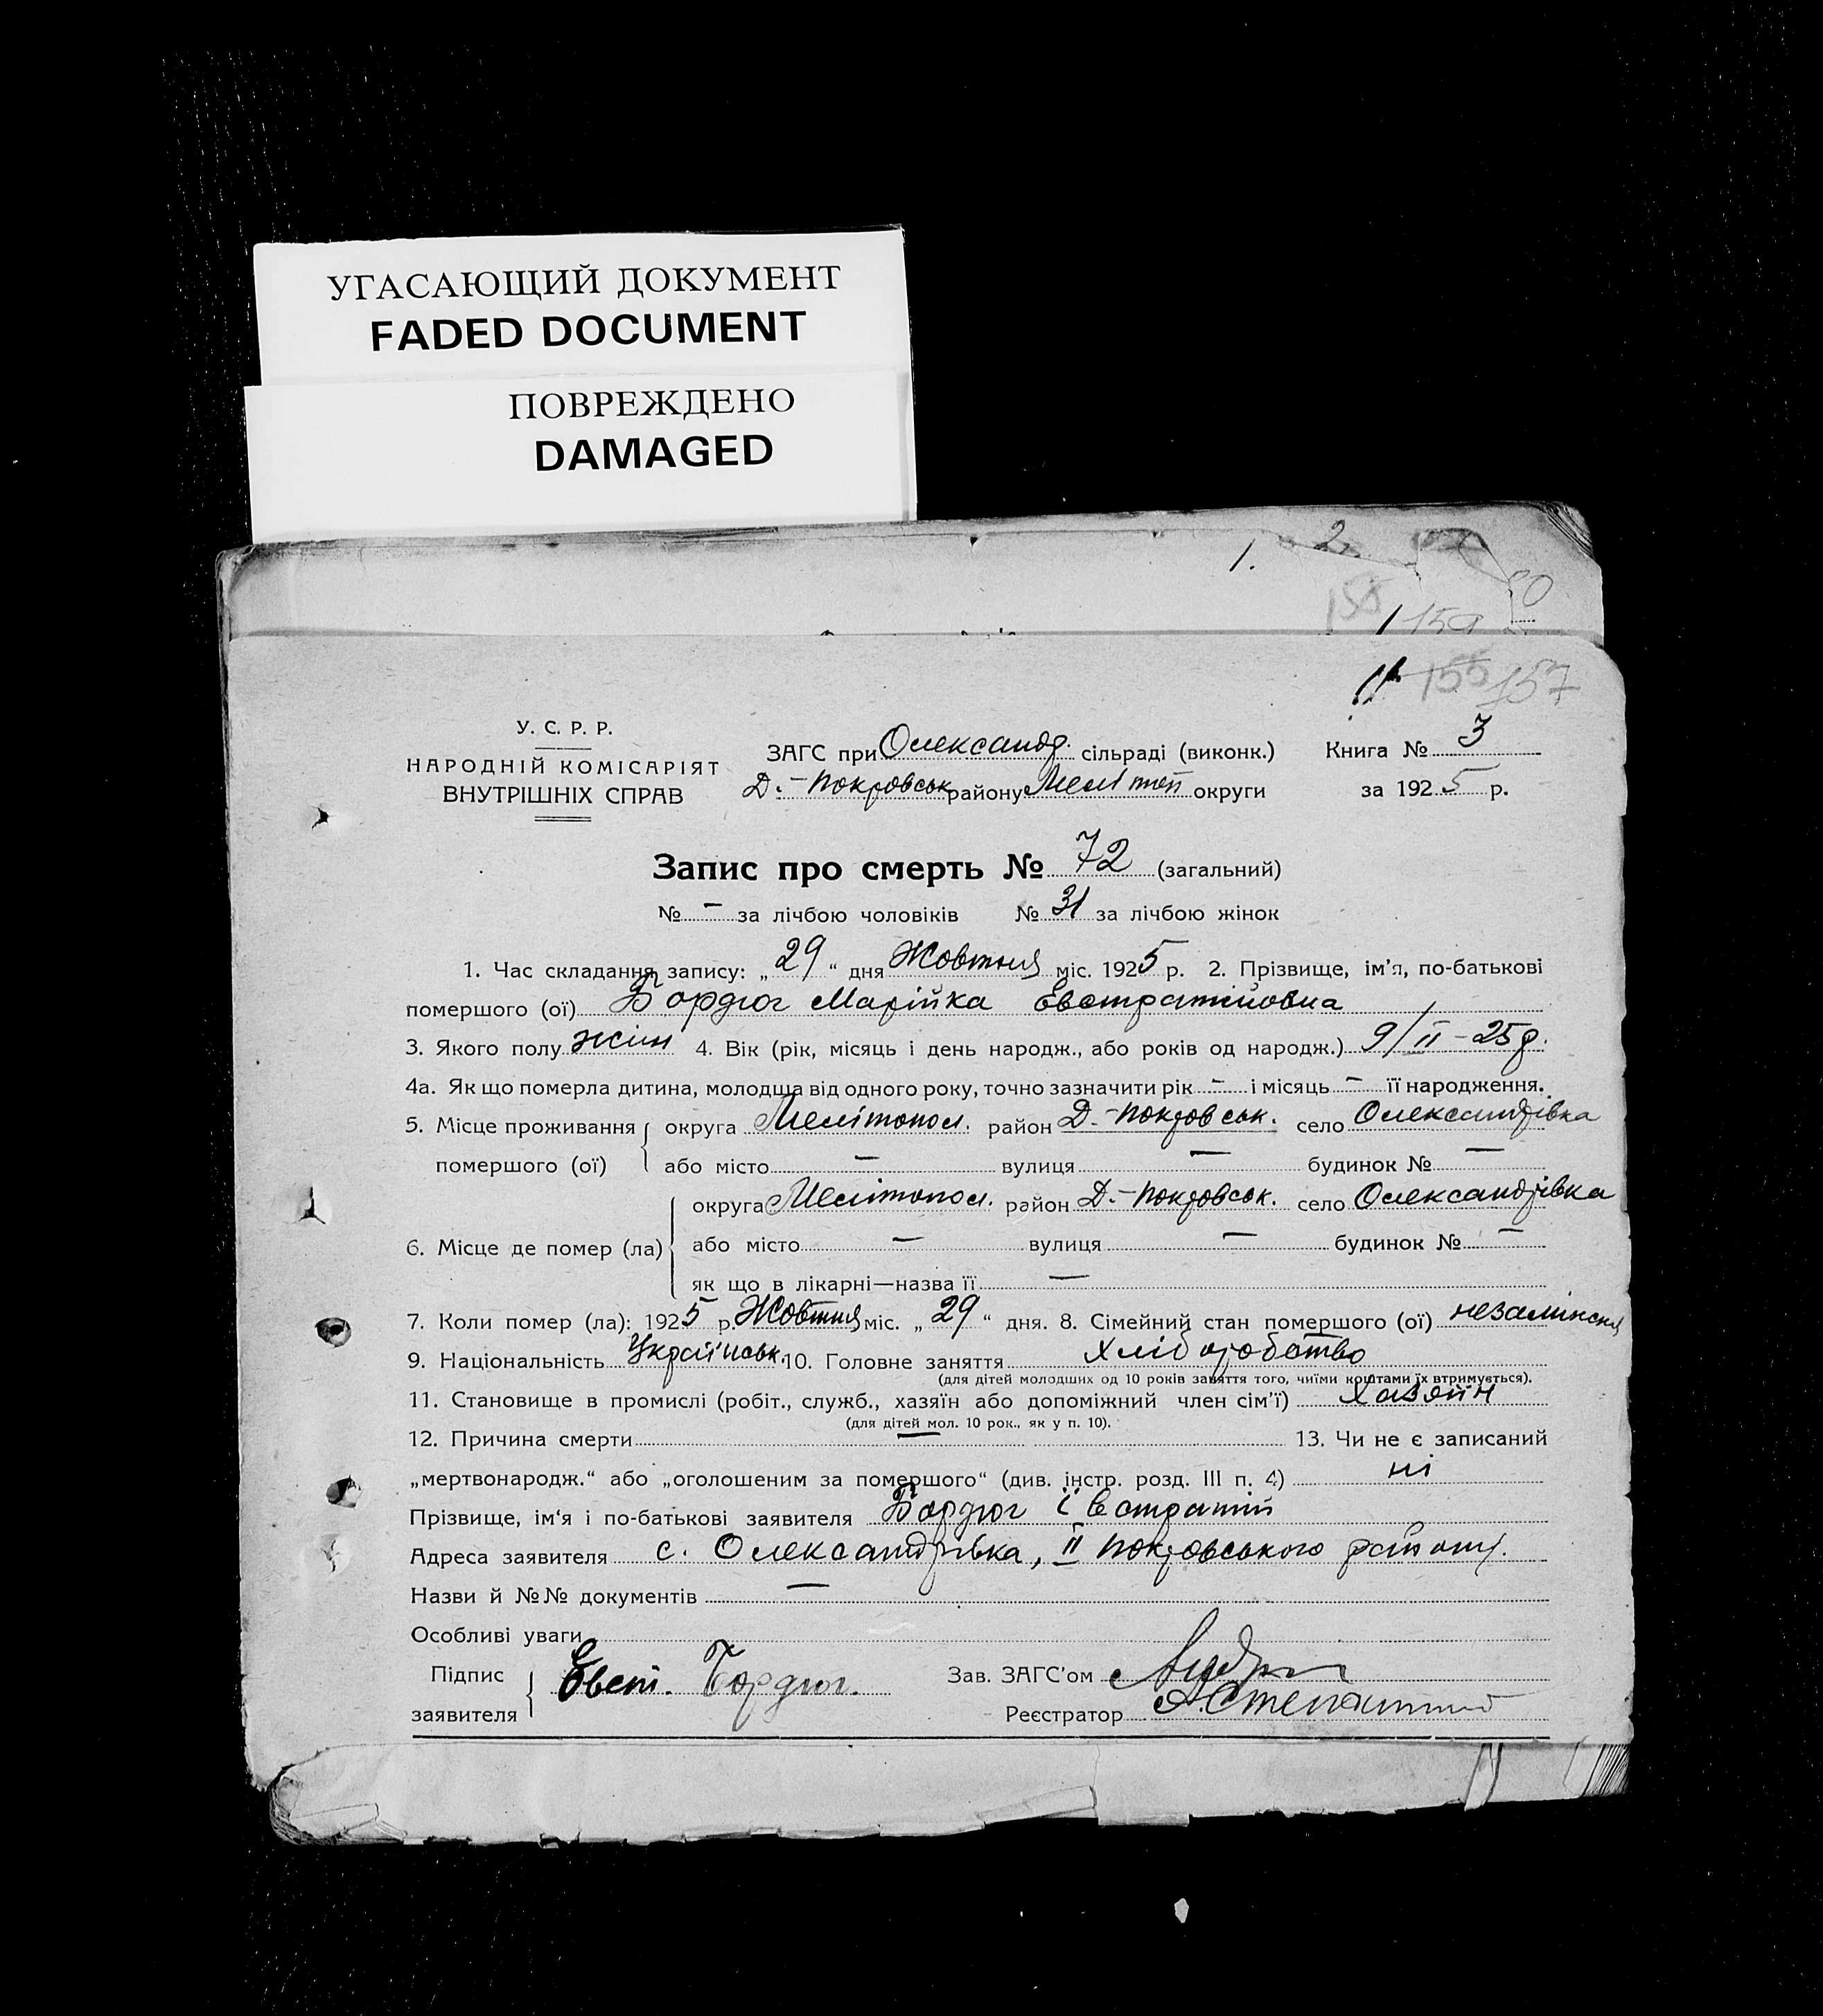 УГАСАЮЩИЙ ДОКУМЕНТ
FADED DOCUMENT
ПОВРЕЖДЕНО
DAMAGED
1. 2
155
159
155 157
У. С. Р. Р.
НАРОДНІЙ КОМІСАРІЯТ
ВНУТРІШНІХ СПРАВ
ЗАГС при Олександр. сільраді (виконк.)
Д.-Покровськ району Меліт оп округи
Книга № 3
за 1925 р.
Запис про смерть № 72 (загальний)
№ – за лічбою чоловіків № 31 за лічбою жінок
1. Час складання запису: „29“ дня Жовтня міс. 1925 р. 2. Прізвище, ім’я, по-батькові
помершого (ої) Бордюг Марійка Евстратійовна
3. Якого полу жін 4. Вік (рік, місяць і день народж., або років од народж.) 9/II – 25 р.
4а. Як що померла дитина, молодша від одного року, точно зазначити рік – і місяць – її народження.
5. Місце проживання помершого (ої) округа Мелітопол. район Д.-Покровськ. село Олександрівка
або місто – вулиця – будинок № –
6. Місце де помер (ла) округа Мелітопол. район Д.-Покровськ. село Олександрівка
або місто – вулиця – будинок № –
як що в лікарні—назва її –
7. Коли помер (ла): 1925 р. Жовтня міс. „29“ дня. 8. Сімейний стан помершого (ої)
9. Національність Українськ. 10. Головне заняття Хліборобство
(для дітей молодших од 10 років заняття того, чиїми коштами їх втримується).
11. Становище в промислі (робіт., служб., хазяїн або допоміжний член сім’ї) Хазяїн
(для дітей мол. 10 рок., як у п. 10).
12. Причина смерти – 13. Чи не є записаний
„мертвонародж.“ або „оголошеним за помершого“ (див. інстр. розд. III п. 4) ні
Прізвище, ім‘я і по-батькові заявителя Бордюг Євстратій
Адреса заявителя с. Олександрівка, II Покровського району.
Назви й №№ документів –
Особливі уваги
Підпис заявителя Евст. Бордюг.
Зав. ЗАГС’ом
Реєстратор